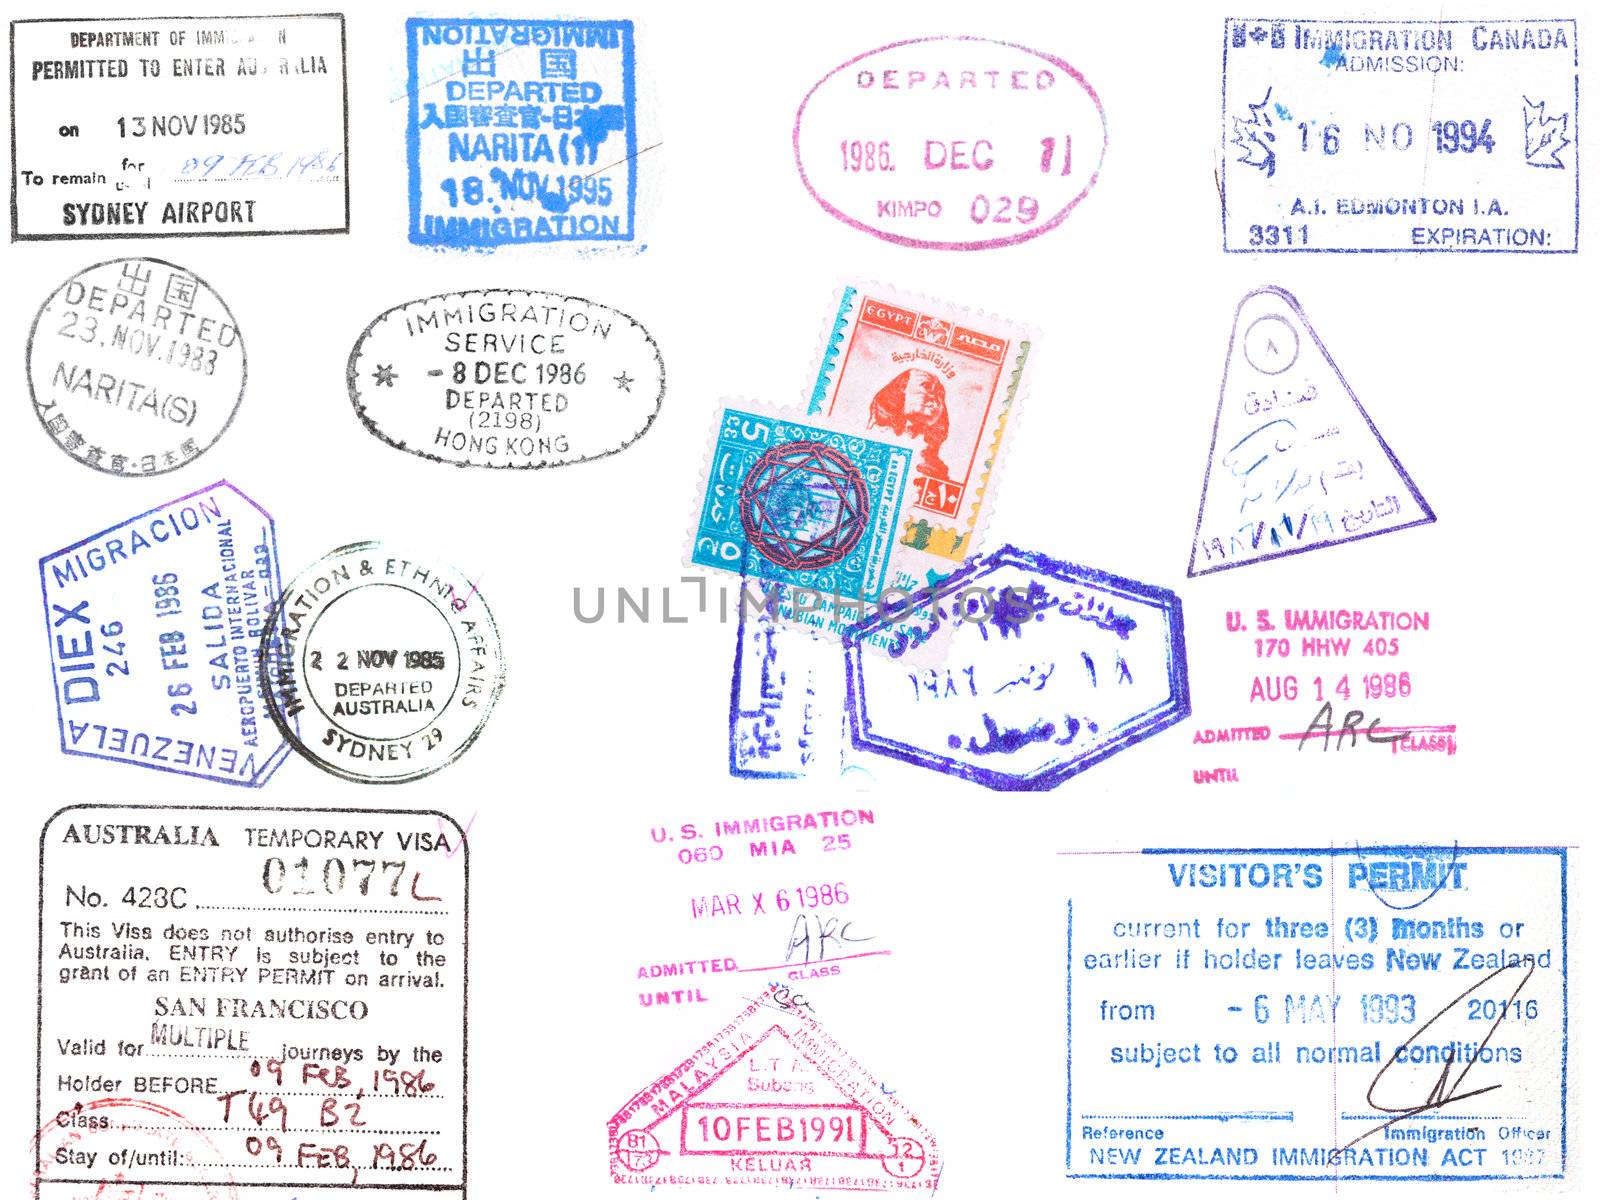 DEPARTMENT OF
PERMITTED TO ENTER
on 13 NOV 1985
To remain for 09 FEB 1986
SYDNEY AIRPORT
IMMIGRATION
出国
DEPARTED
入国審査官-日本国
NARITA (1)
18. NOV. 1995
IMMIGRATION
DEPARTED
1986. DEC 11
KIMPO 029
IMMIGRATION CANADA
ADMISSION:
16 NO 1994
A.I. EDMONTON I.A.
3311 EXPIRATION:
出国
DEPARTED
23. NOV. 1988
NARITA(S)
入国審査官·日本国
IMMIGRATION
SERVICE
- 8 DEC 1986
DEPARTED
(2198)
HONG KONG
EGYPT مصر
وزارة الخارجية
١٠
5
٥
UNESCO CAMPAIGN TO SAVE
NUBIAN MONUMENTS
٨
فنادق
التاريخ
MIGRACION
DIEX
246
26 FEB 1986
SALIDA
AEROPUERTO INTERNACIONAL
SIMON BOLIVAR
VENEZUELA
IMMIGRATION & ETHNIC AFFAIRS
2 2 NOV 1985
DEPARTED
AUSTRALIA
SYDNEY 29
١٨ نوفمبر ١٩٨٦
وصول
U. S. IMMIGRATION
170 HHW 405
AUG 14 1986
ADMITTED ARC (CLASS)
UNTIL
UNLIMPHOTOS
AUSTRALIA TEMPORARY VISA
01077L
No. 428C
This Visa does not authorise entry to
Australia. ENTRY is subject to the
grant of an ENTRY PERMIT on arrival.
SAN FRANCISCO
Valid for MULTIPLE journeys by the
Holder BEFORE 09 FEB, 1986
Class T49 B2
Stay of/until: 09 FEB, 1986
U. S. IMMIGRATION
060 MIA 25
MAR X 6 1986
ADMITTED ARC
CLASS
UNTIL
MALAYSIA IMMIGRATION
L.T.A.
Subang
10 FEB 1991
KELUAR
VISITOR'S PERMIT
current for three (3) months or
earlier if holder leaves New Zealand
from - 6 MAY 1993 20116
subject to all normal conditions
Reference Immigration Officer
NEW ZEALAND IMMIGRATION ACT 1987